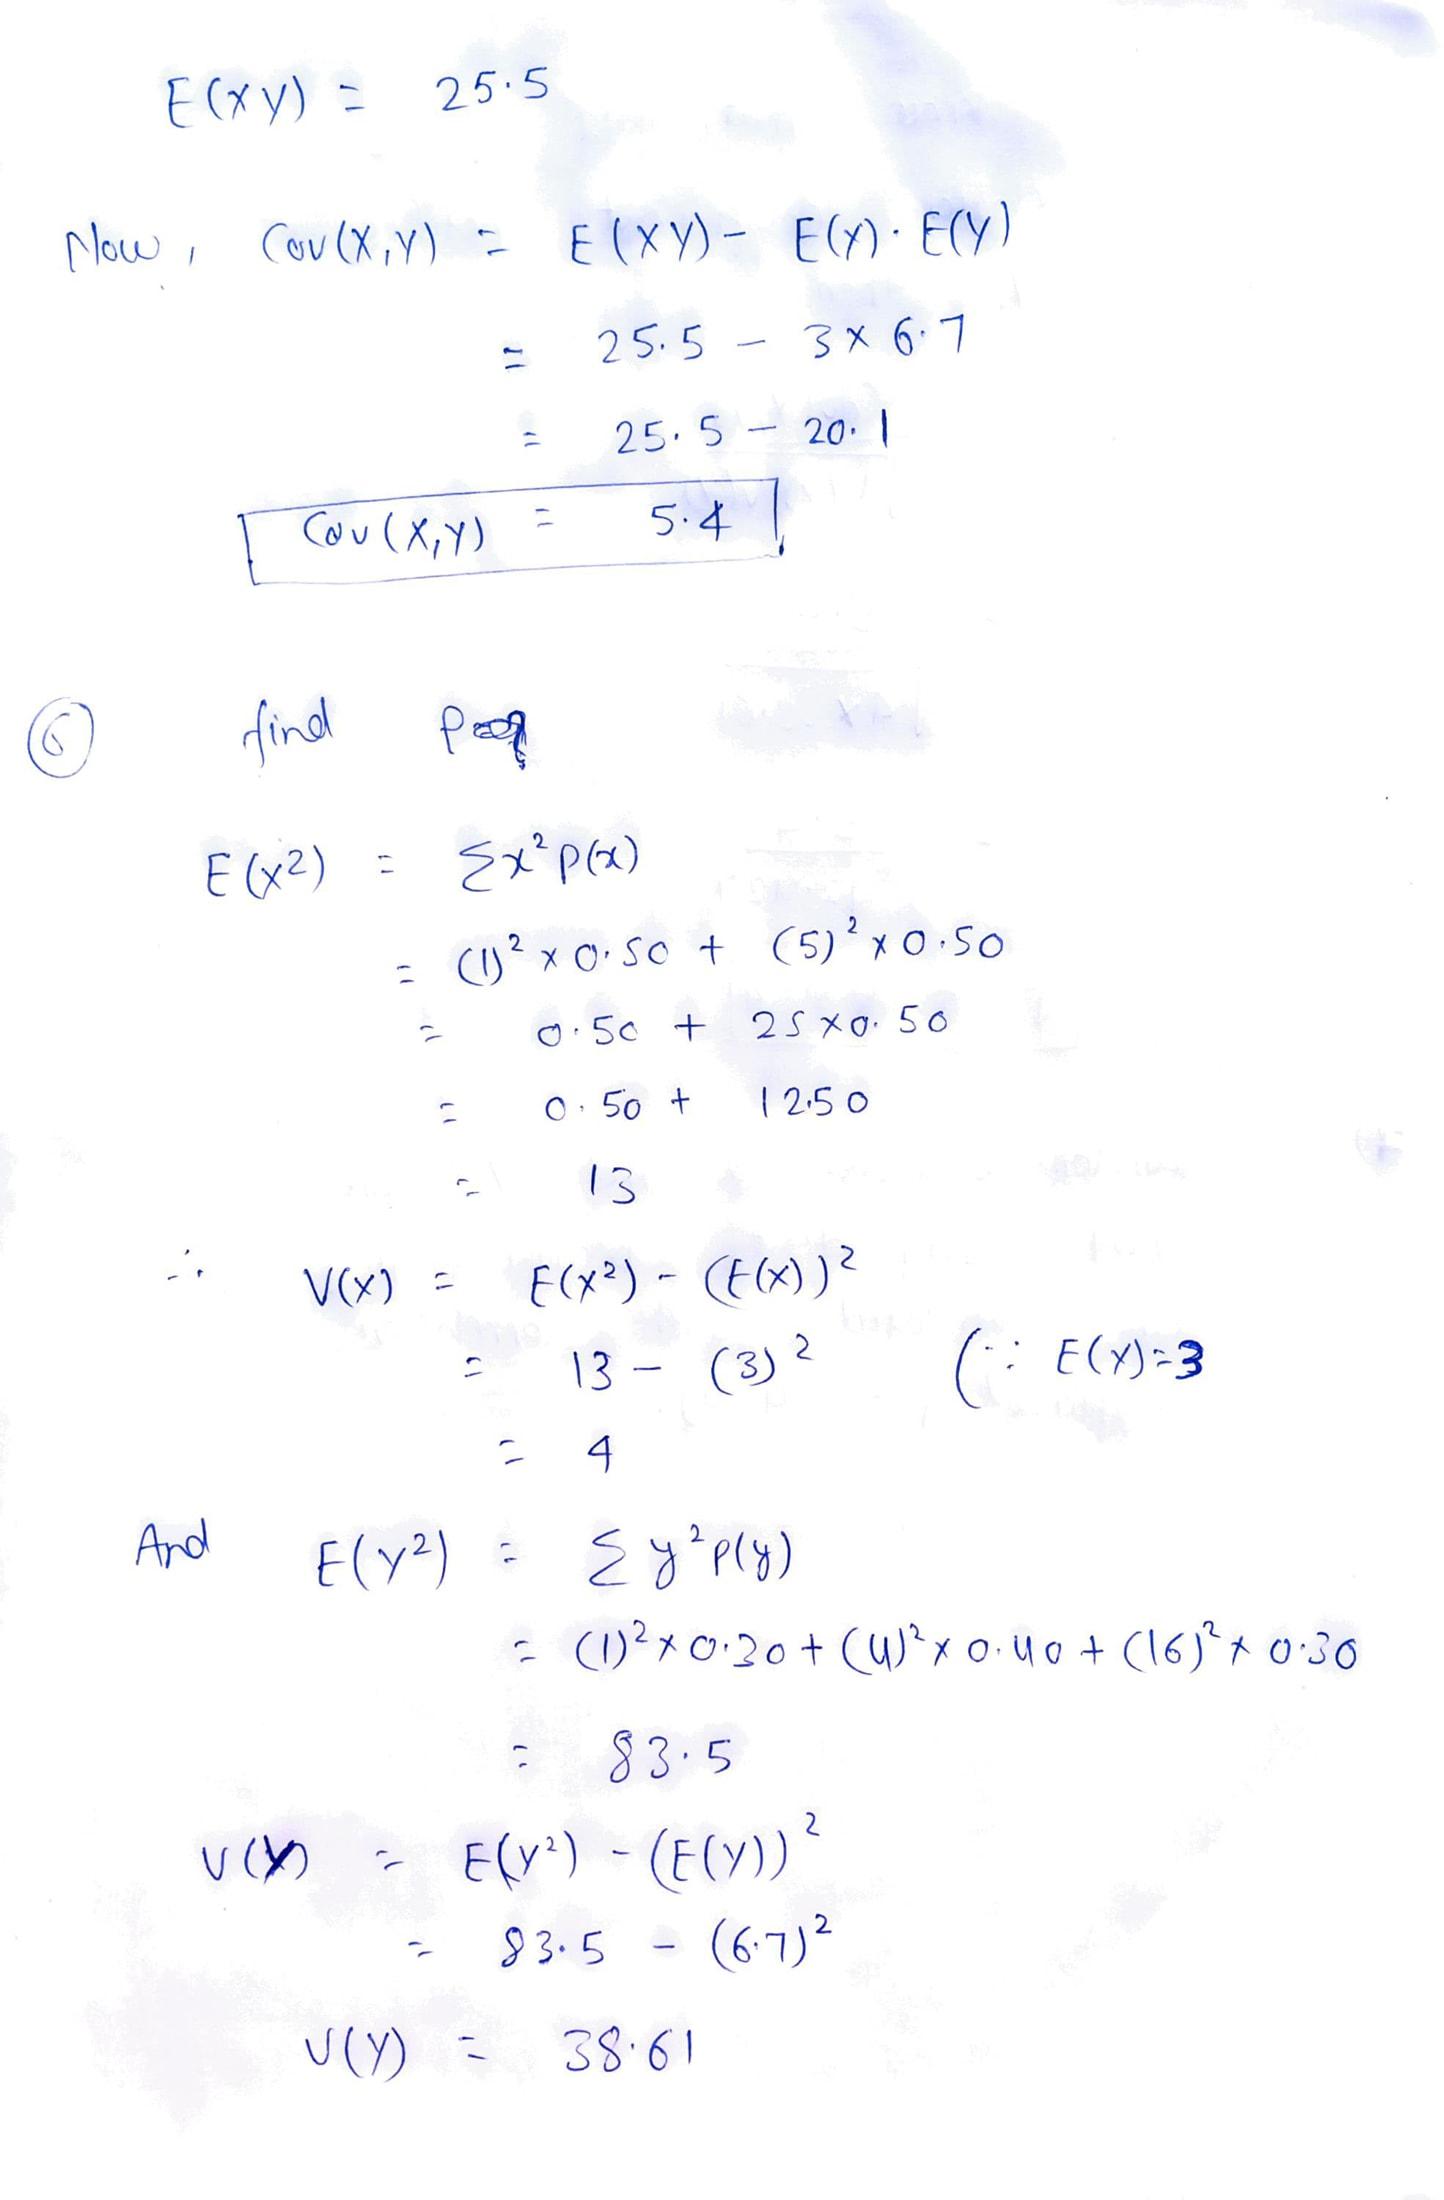 E(XY) = 25.5
Now, Cov(X,Y) = E(XY) - E(X)·E(Y)
= 25.5 - 3 × 6.7
= 25.5 - 20.1
Cov(X,Y) = 5.4
6 find
E(X2) = Σx²p(x)
= (1)² × 0.50 + (5)² × 0.50
= 0.50 + 25 × 0.50
= 0.50 + 12.50
= 13
∴ V(X) = E(X²) - (E(X))²
= 13 - (3)² (∵ E(X)=3
= 4
And E(Y²) = Σy²p(y)
= (1)² × 0.30 + (4)² × 0.40 + (16)² × 0.30
= 83.5
V(Y) = E(Y²) - (E(Y))²
= 83.5 - (6.7)²
V(Y) = 38.61